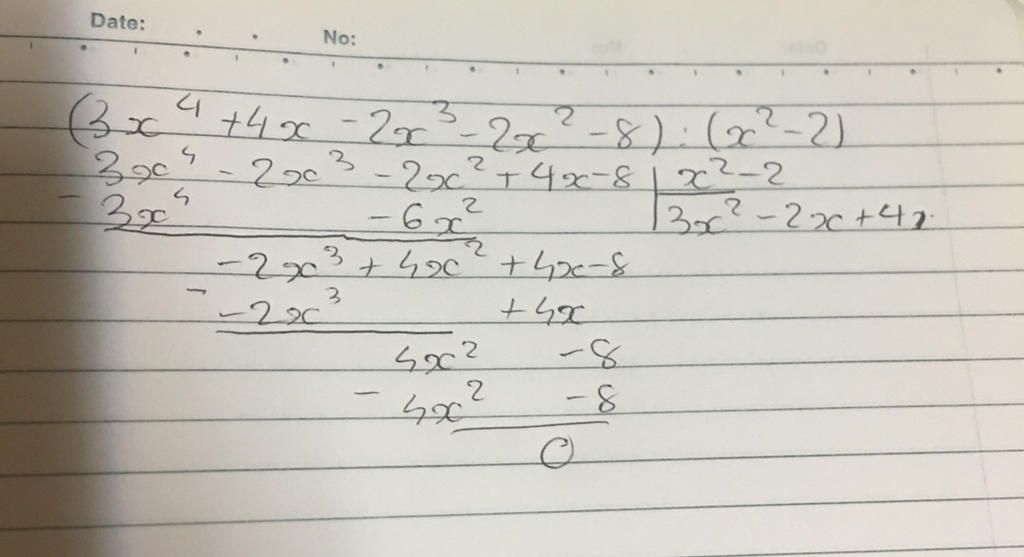 Date: No:
(3x⁴ + 4x - 2x³ - 2x² - 8) : (x² - 2)
3x⁴ - 2x³ - 2x² + 4x - 8 | x² - 2
- 3x⁴ - 6x² | 3x² - 2x + 4
- 2x³ + 4x² + 4x - 8
- - 2x³ + 4x
4x² - 8
- 4x² - 8
0